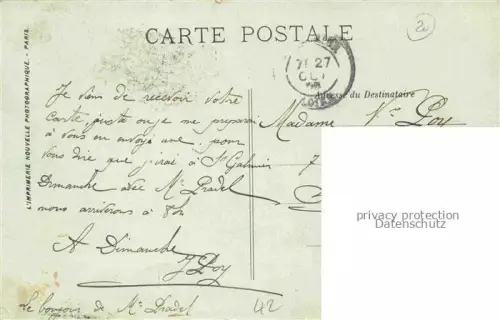 CARTE POSTALE
2
7E 27
OCT
LOIRE
Adresse du Destinataire
L'IMPRIMERIE NOUVELLE PHOTOGRAPHIQUE - PARIS.
Je viens de recevoir votre
carte juste ou je me preparai
à vous en envoyé une pour
vous dire que j'irai à St Galmier
Dimanche avec Mr Pradel
nous arriverons à 8h
A Dimanche
J Poy
Le bonjour de Mr Pradel
42
Madame Ve Poy
7
privacy protection
Datenschutz